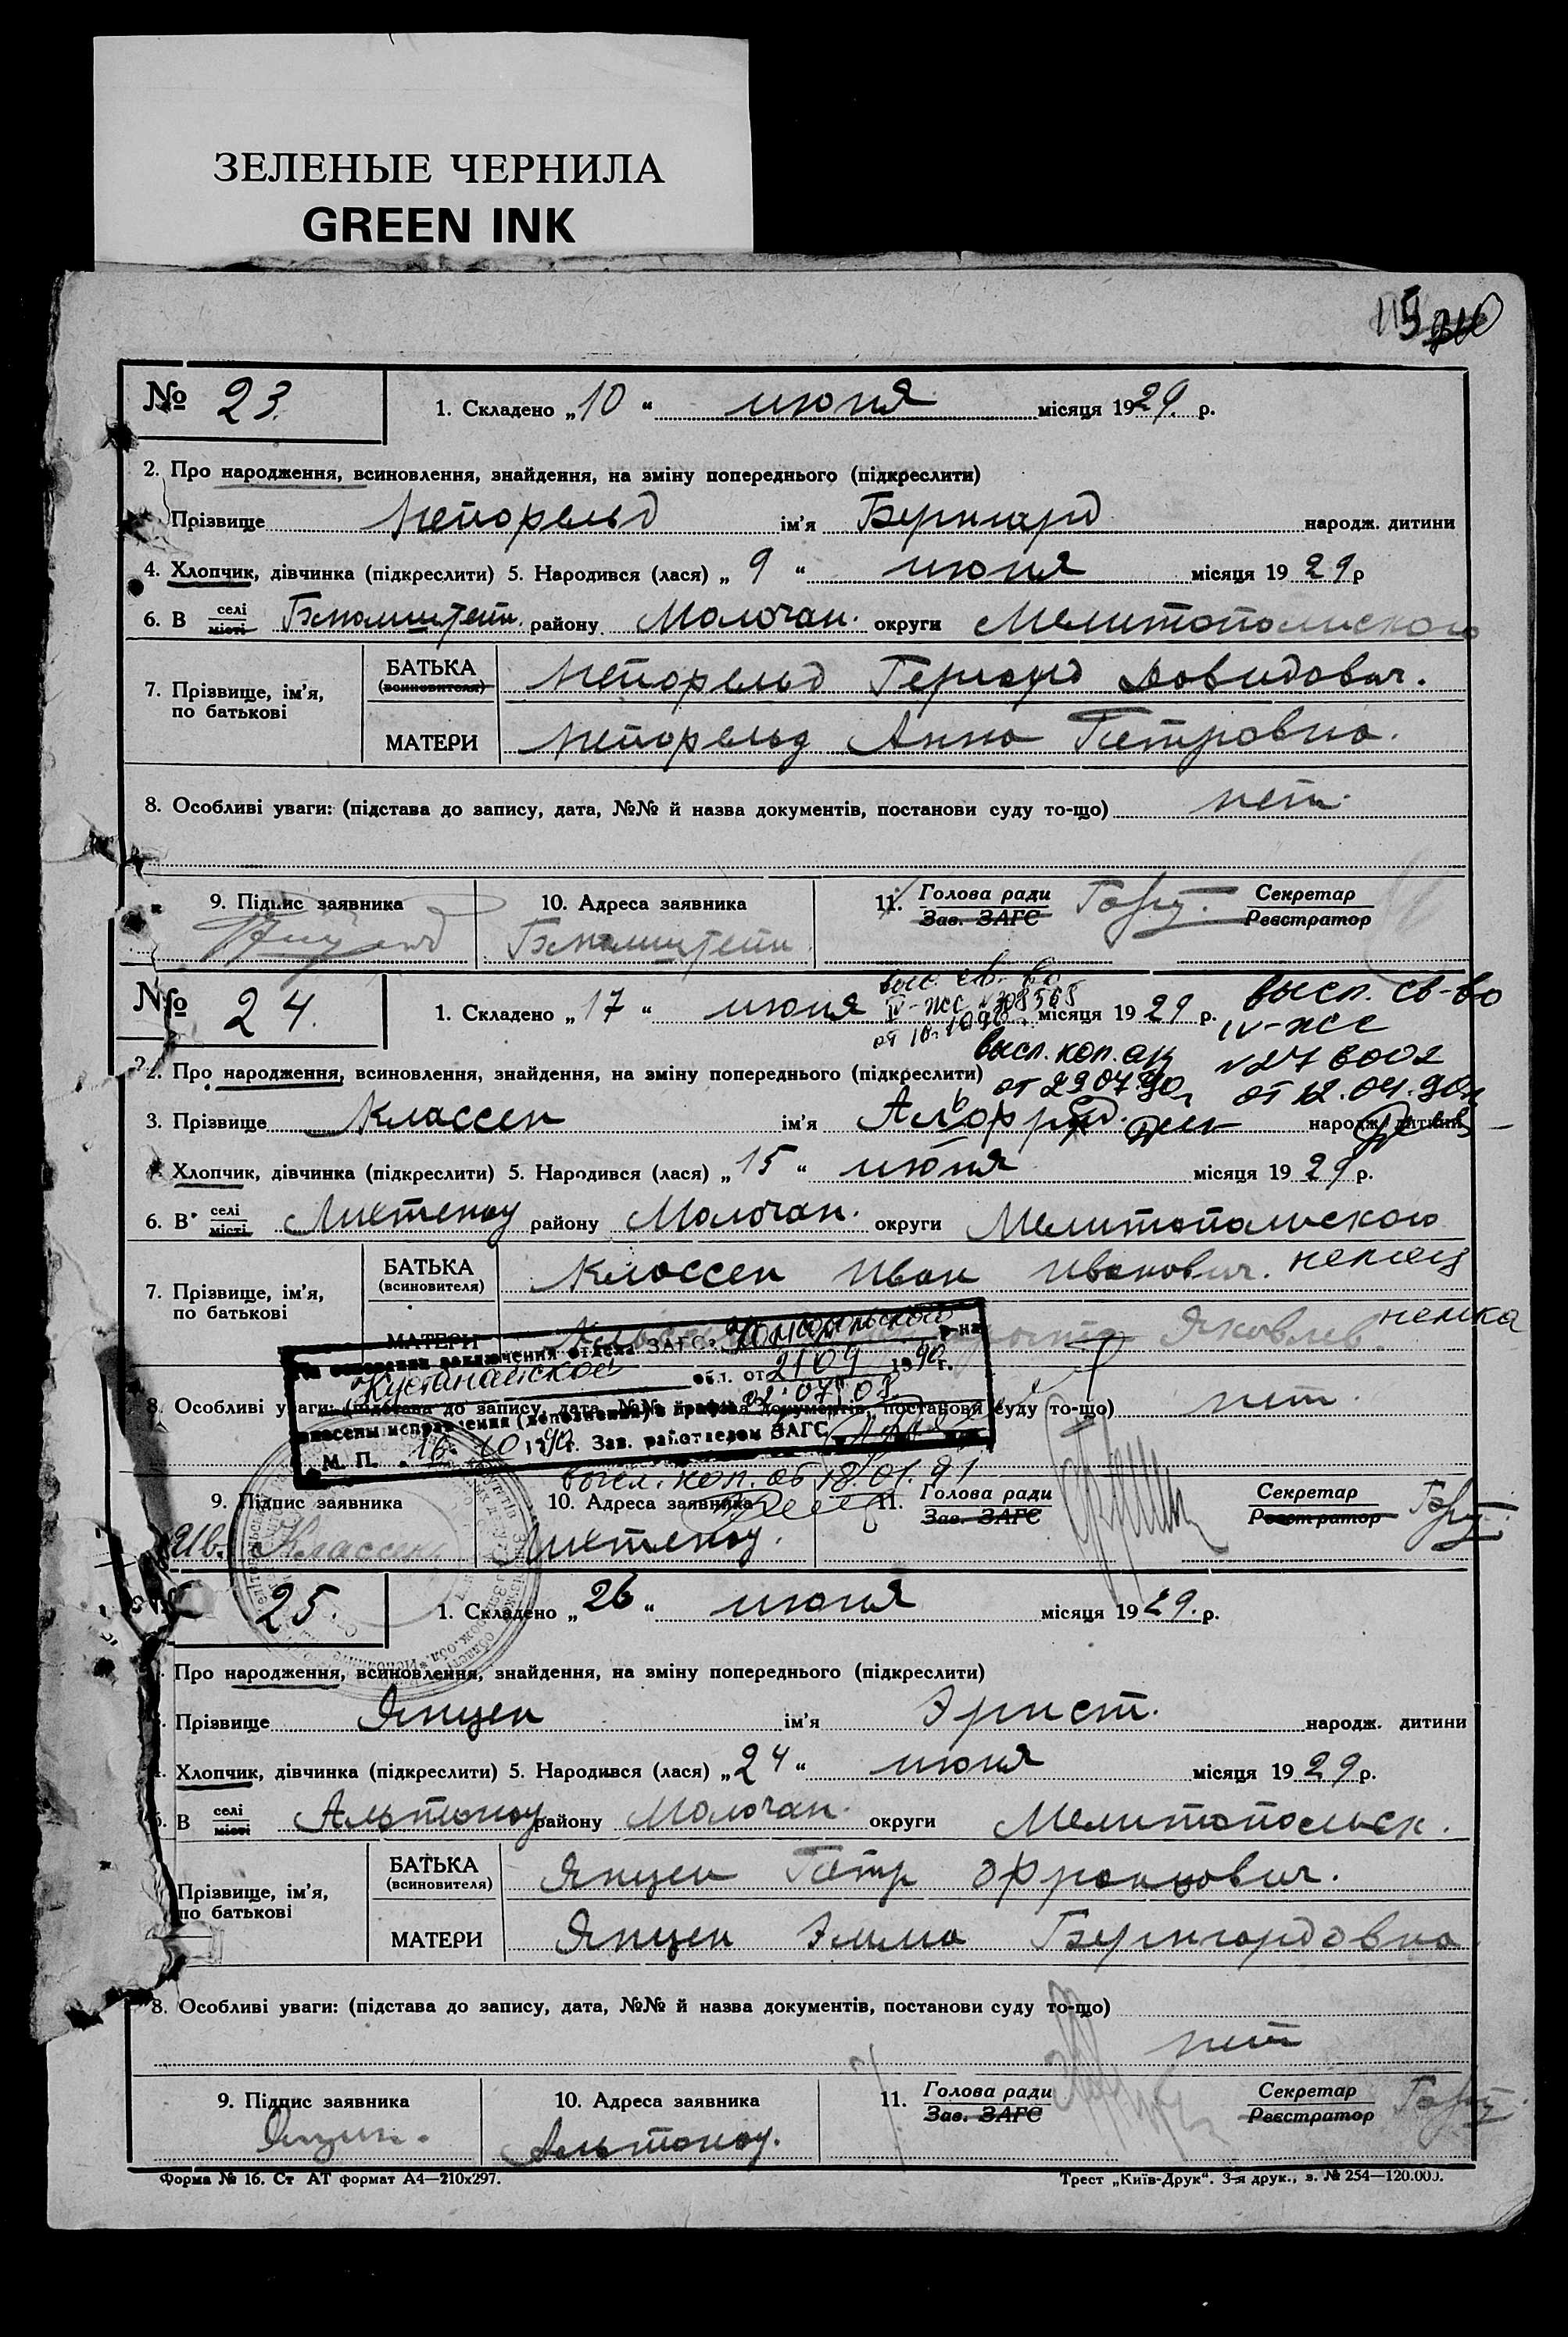 ЗЕЛЕНЫЕ ЧЕРНИЛА
GREEN INK
№ 23. 1. Складено „10“ июня місяця 1929. р.
2. Про народження, всиновлення, знайдення, на зміну попереднього (підкреслити)
Прізвище ім'я Бернгард народж. дитини
4. Хлопчик, дівчинка (підкреслити) 5. Народився (лася) „ 9 “ июня місяця 1929 р
6. В селі місті району Молочан. округи Мелитопольского
7. Прізвище, ім'я, по батькові
БАТЬКА (всиновителя) Гергард Давидович.
МАТЕРИ Анна Петровна.
8. Особливі уваги: (підстава до запису, дата, №№ й назва документів, постанови суду то-що) нет.
9. Підпис заявника 10. Адреса заявника 11. Голова ради Зав. ЗАГС Секретар Реєстратор
№ 24. 1. Складено „17“ июня місяця 1929 р.
высл. св-во
IV-жс
от 12.04.90г
2. Про народження, всиновлення, знайдення, на зміну попереднього (підкреслити)
высл. коп. ак
от 29 07 90г
3. Прізвище Классен ім'я народж. дитини
Хлопчик, дівчинка (підкреслити) 5. Народився (лася) „15“ июня місяця 1929 р.
6. В селі місті Лихтенау району Молочан. округи Мелитопольского
7. Прізвище, ім'я, по батькові
БАТЬКА (всиновителя) Классен Иван Иванович. немец
МАТЕРИ Яковлев. немка
На основании заключения отдела ЗАГС Комсомольского р-на
Кустанайской обл. от 21 09 1990г.
8. Особливі уваги: (підстава до запису, дата, №№ й назва документів, постанови суду то-що) нет.
внесены исправления (дополнения) в графы
М. П. 16. 10 1990г. Зав. райотделом ЗАГС
высл. коп. об 18.01.91
9. Підпис заявника 10. Адреса заявника 11. Голова ради Зав. ЗАГС Секретар Реєстратор
Ив. Классен Лихтенау.
25. 1. Складено „26“ июня місяця 1929. р.
Про народження, всиновлення, знайдення, на зміну попереднього (підкреслити)
Прізвище Янцен ім'я Эрнст. народж. дитини
Хлопчик, дівчинка (підкреслити) 5. Народився (лася) „24“ июня місяця 1929 р.
В селі місті Альтонау району Молочан. округи Мелитопольск.
Прізвище, ім'я, по батькові
БАТЬКА (всиновителя) Янцен Петр Францович.
МАТЕРИ Янцен Эмма Бернгардовна
8. Особливі уваги: (підстава до запису, дата, №№ й назва документів, постанови суду то-що)
нет
9. Підпис заявника 10. Адреса заявника 11. Голова ради Зав. ЗАГС Секретар Реєстратор
Янцен. Альтонау.
Форма № 16. Ст АТ формат А4—210х297. Трест „Київ-Друк“. 3-я друк., з. № 254—120.000.